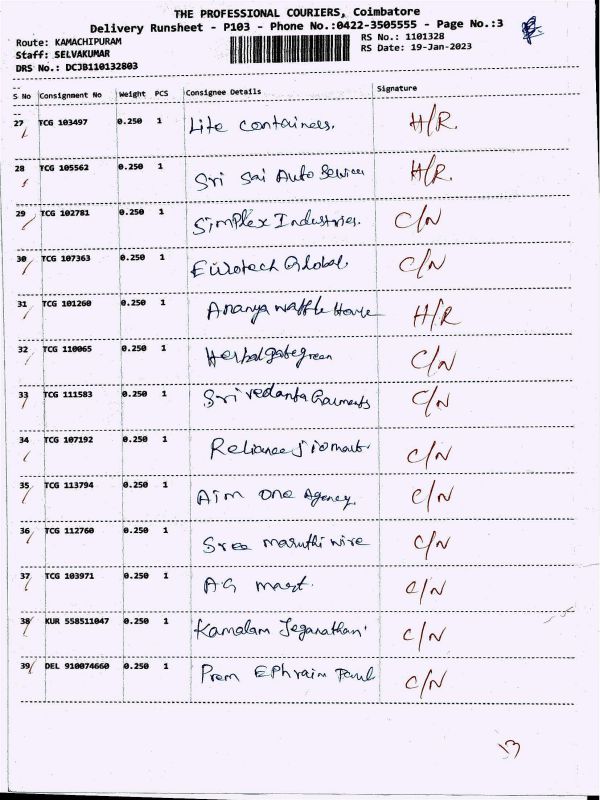 THE PROFESSIONAL COURIERS, Coimbatore
Delivery Runsheet - P103 - Phone No.:0422-3505555 - Page No.:3
Route: KAMACHIPURAM RS No.: 1101328
Staff: SELVAKUMAR RS Date: 19-Jan-2023
DRS No.: DCJB110132803
S No Consignment No Weight PCS Consignee Details Signature
27 TCG 103497 0.250 1 Lite Containers. H/R.
28 TCG 105562 0.250 1 Sri Sai Auto Services H/R.
29 TCG 102781 0.250 1 Simplex Industries. C/N
30 TCG 107363 0.250 1 Eurotech Global. C/N
31 TCG 101260 0.250 1 Ananya Waffle House H/R
32 TCG 110065 0.250 1 Herbalgategreen C/N
33 TCG 111583 0.250 1 Sri Vedanta Garments C/N
34 TCG 107192 0.250 1 Reliance Jiomart. C/N
35 TCG 113794 0.250 1 Aim One Agency. C/N
36 TCG 112760 0.250 1 Sree Maruthi Wire C/N
37 TCG 103971 0.250 1 AG Mart. C/N
38 KUR 558511047 0.250 1 Kamalam Jeganathan C/N
39 DEL 910074660 0.250 1 Prem Ephraim Paul C/N
13